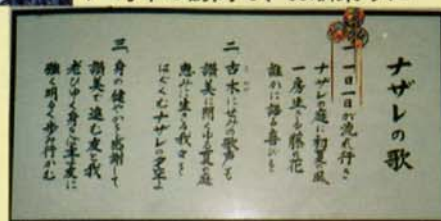 ナザレの歌
一、一日一日が流れ行き
ナザレの庭に初夏の風
一房生きる藤の花
誰かに語る喜びを
二、古木にせみの歌声も
讃美に聞ゆる夏の庭
恵みに生きる我等を
はぐくむナザレの
三、身の健やかを感謝して
讃美で進む友と我
老いゆく身
強く明るく歩み行かむ